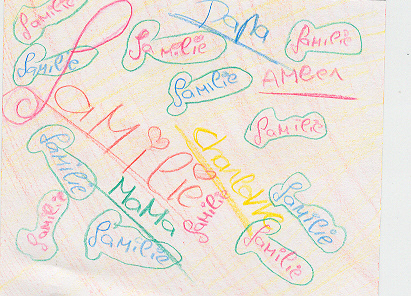 Familie
Papa
Familie
Familie
Familie
Familie
Familie
Familie
Familie
Familie
MaMa
Familie
Familie
Familie
Familie
Familie